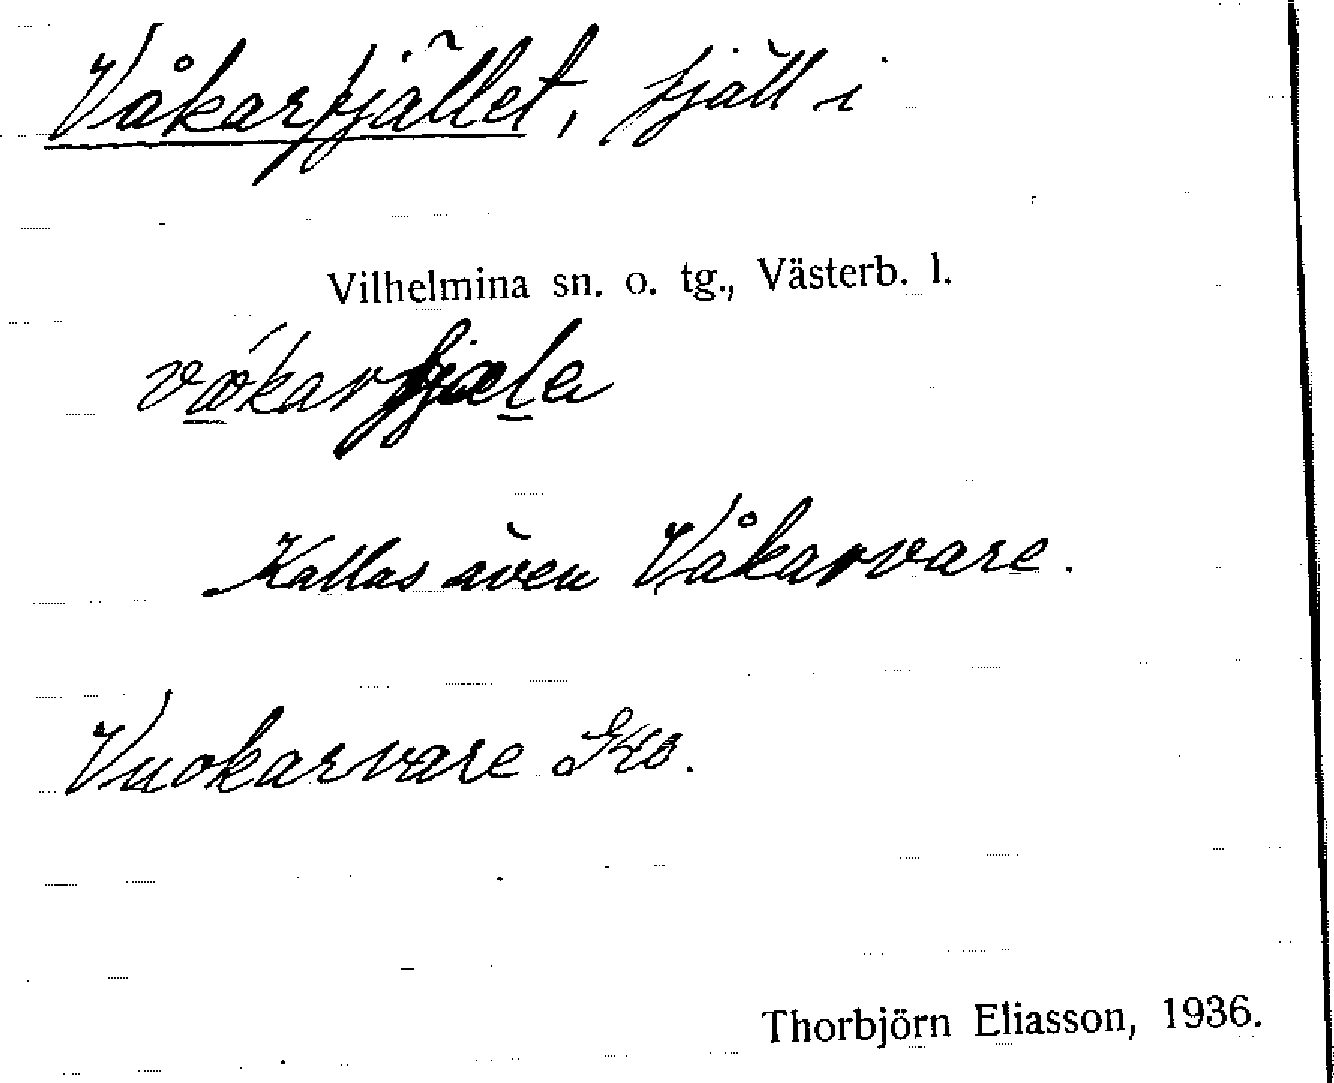 Våkarfjället, fjäll i
Vilhelmina sn. o. tg., Västerb. l.
Kallas även Våkarvare.
Vuokarvare
Thorbjörn Eliasson, 1936.